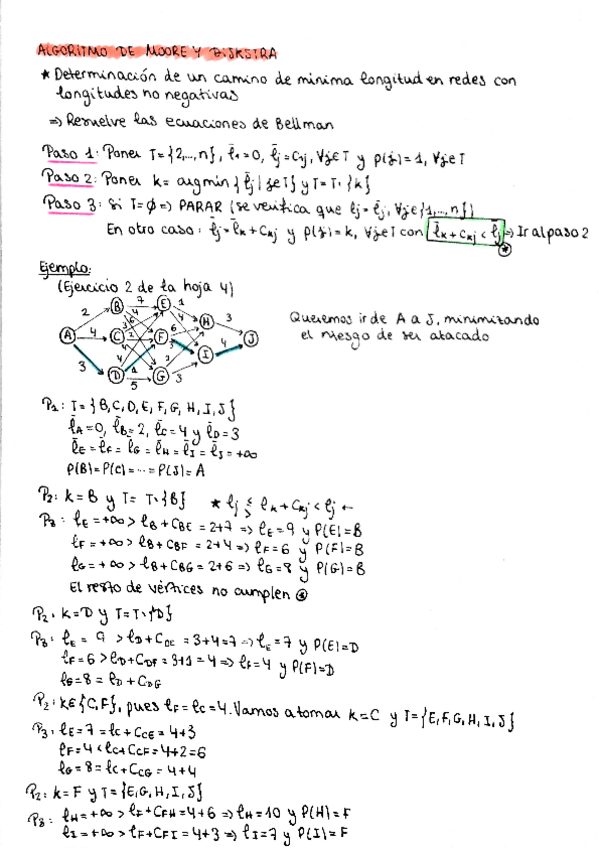 ALGORITMO DE MOORE Y DIJKSTRA
* Determinación de un camino de mínima longitud en redes con
longitudes no negativas
⇒ Resuelve las ecuaciones de Bellman
Paso 1: Poner T={2,...,n}, l̄₁=0, l̄j=C₁j, ∀j∈T y p(j)=1, ∀j∈T
Paso 2: Poner k= argmin{l̄j | j∈T} y T=T\{k}
Paso 3: Si T=∅ ⇒ PARAR (se verifica que lj=l̄j, ∀j∈{1,...,n})
En otro caso: l̄j=l̄k+Ckj y p(j)=k, ∀j∈T con l̄k+Ckj<l̄j ⇒ Ir al paso 2
Ejemplo:
(Ejercicio 2 de la hoja 4)
Queremos ir de A a J, minimizando
el riesgo de ser atacado
A B C D E F G H I J
2 4 3 7 4 1 5 6 3 4 3
P1: T={B,C,D,E,F,G,H,I,J}
l̄A=0, l̄B=2, l̄C=4 y l̄D=3
l̄E=l̄F=l̄G=l̄H=l̄I=l̄J=+∞
P(B)=P(C)=...=P(J)=A
P2: k=B y T=T\{B}
P3: lE=+∞>lB+CBE=2+7 ⇒ lE=9 y P(E)=B
lF=+∞>lB+CBF=2+4 ⇒ lF=6 y P(F)=B
lG=+∞>lB+CBG=2+6 ⇒ lG=8 y P(G)=B
El resto de vértices no cumplen *
P2: k=D y T=T\{D}
P3: lE=9>lD+CDE=3+4=7 ⇒ lE=7 y P(E)=D
lF=6>lD+CDF=3+1=4 ⇒ lF=4 y P(F)=D
lG=8=lD+CDG
P2: k∈{C,F}, pues lF=lC=4. Vamos a tomar k=C y T={E,F,G,H,I,J}
P3: lE=7=lC+CCE=4+3
lF=4<lC+CCF=4+2=6
lG=8=lC+CCG=4+4
P2: k=F y T={E,G,H,I,J}
P3: lH=+∞>lF+CFH=4+6 ⇒ lH=10 y P(H)=F
lI=+∞>lF+CFI=4+3 ⇒ lI=7 y P(I)=F